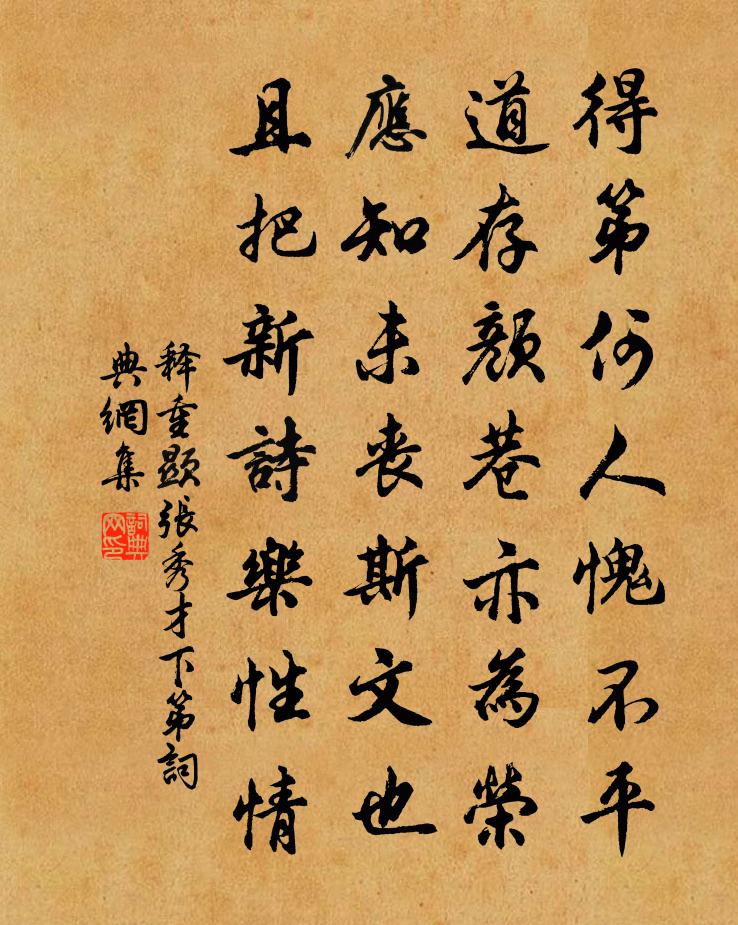 得第何人愧不平
道存顏巷亦為榮
應知未喪斯文也
且把新詩樂性情
释重顯張秀才下第詞
典網集
詞典
网印